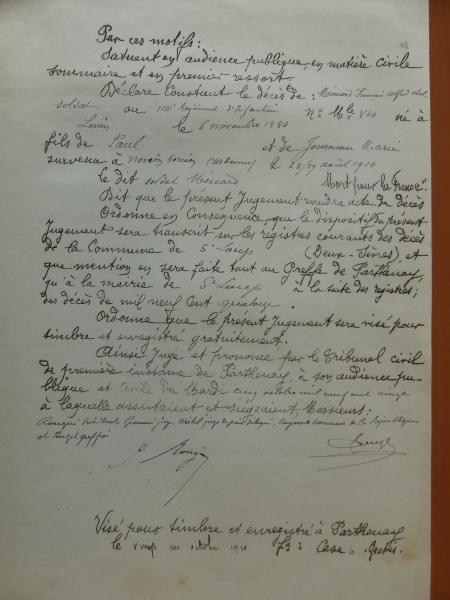 Par ces motifs:
Statuant en audience publique, en matière civile
sommaire et en premier ressort.
Déclare Constant le décès de: Ménard
soldat au 114e Régiment d'Infanterie No Mle 844 né à
Louin le 6 novembre 1894
fils de Paul et de Marie
survenu à Novion Porcien Ardennes le 28/29 août 1914
Le dit soldat Ménard "Mort pour la France".
Dit que le présent Jugement tiendra acte de décès
Ordonne en Conséquence, que le dispositif du présent
Jugement sera transcrit sur les registres courants des décès
de la Commune de St Loup (Deux-Sèvres), et
que mention en sera faite tant au Greffe de Parthenay,
qu'à la mairie de St Loup à la suite des registres,
des décès de mil neuf cent quatorze.
Ordonne que le présent Jugement sera visé pour
timbre et enregistré gratuitement.
Ainsi jugé et prononcé par le Tribunal civil
de première instance de Parthenay, à son audience pu-
blique et civile du Mardi cinq octobre mil neuf cent vingt
à laquelle assistaient et siégeaient Messieurs:
Président, juge, juge de la République
et greffier
Visé pour timbre et enregistré à Parthenay
le vingt un octobre 1920 Fo 3 Case 4. Gratis.